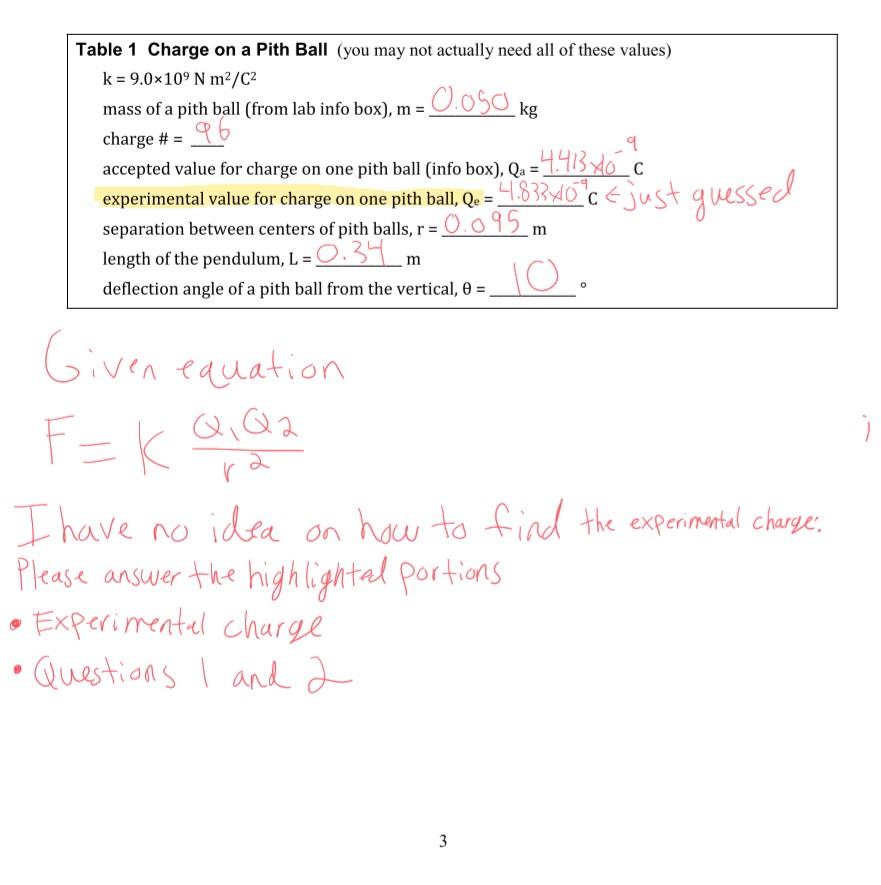 Table 1 Charge on a Pith Ball (you may not actually need all of these values)
k = 9.0×10⁹ N m²/C²
mass of a pith ball (from lab info box), m = 0.050 kg
charge # = 96
accepted value for charge on one pith ball (info box), Qₐ = 4.413x10⁻⁹ C
experimental value for charge on one pith ball, Qₑ = 4.833x10⁻⁹ C ← just guessed
separation between centers of pith balls, r = 0.095 m
length of the pendulum, L = 0.34 m
deflection angle of a pith ball from the vertical, θ = 10 °
Given equation
F = K Q₁Q₂ / r²
I have no idea on how to find the experimental charge.
Please answer the highlighted portions
• Experimental charge
• Questions 1 and 2
3